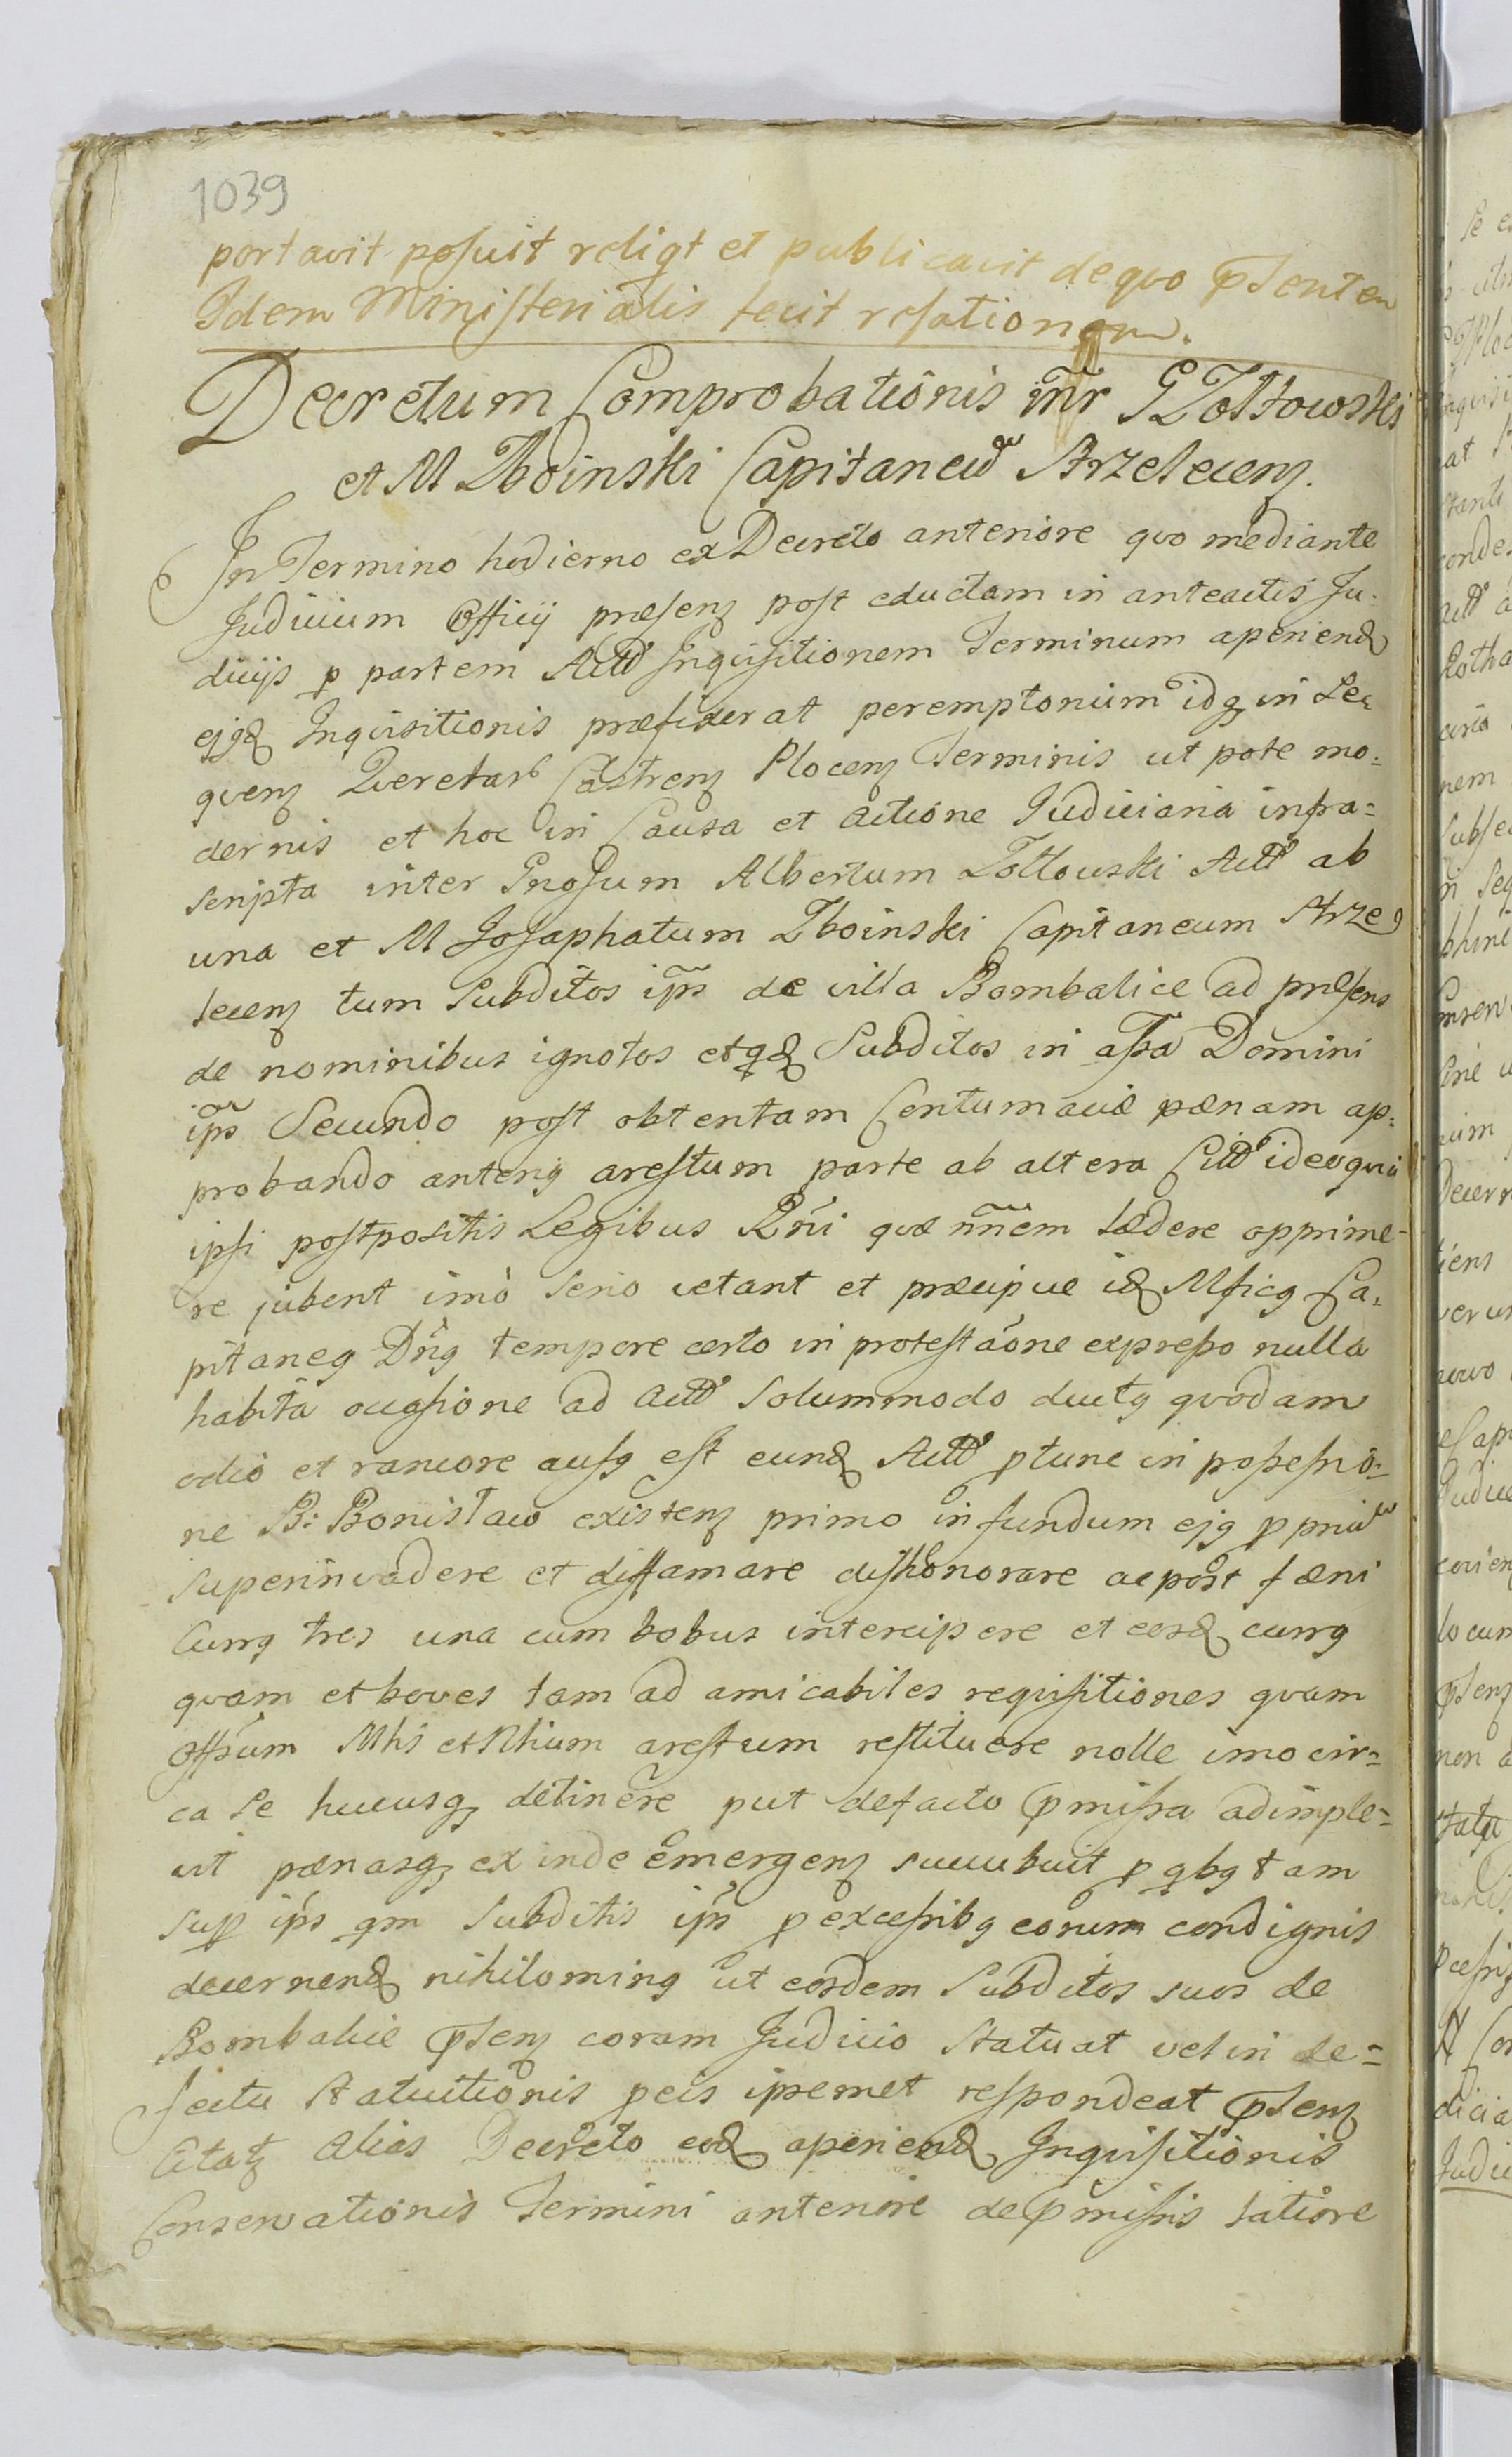 1039
portavit posuit reliqt et publicavit de quo Pñsentem
Idem Ministerialis fecit relationem.
Decretum Comprobationis inr̃ G Zołtowski
et M Zboinski Capitaneũ Strzelecens.
In Termino hodierno ex Decreto anteriore quo mediante
Judicium Officij præsens post eductam in anteactis Ju-
dicijs p partem Act Inquisitionem Terminum aperiend
ejqd Inquisitionis præfixerat peremptorium idq in Se-
quens Queretar Castrens Plocens Terminis ut pote mo-
dernis et hoc in Causa et Actione Judiciaria infra=
scripta inter Gnosum Albertum Zołtowski Act ab
una et M Josaphatum Zboinski Capitaneum Strze
lecens tum Subditos ips̃ de villa Bombalice ad præsens
de nominibus ignotos et qd Subditos in assa Domini
ips̃ Secundo post obtentam Contumaciæ pænam ap-
probando anterig arestum parte ab altera Citt ideo quia
ipsi postpositis Legibus Rñi quæ ñnem lædere opprime-
re jubent imò serio vetant et præcipue id Mficg Ca-
pitaneg Dñg tempore certo in protestãone expresso nulla
habitâ occasione ad Act solummodo ductg quodam
odio et rancore ausg est eund Act ptunc in possessio-
ne B: Bonisław existens primo in fundum ejg ppriũ
superinvadere et diffamare dishonorare ac post fæni
Currg tres una cum bobus intercipere et eosd currg
quam et boves tam ad amicabiles requisitiones quam
offsum Mhs et Nhium arestum restituere nolle imo cir-
ca se hucusq detinere put de facto Pmissa adimple-
vit pænasq ex inde emergens succubuit p qbg tam
sup ips̃ qm Subditis ips̃ p excessibg eorum condignis
decernend nihiloming ut eosdem Subditos suos de
Bombalice Psens coram Judicio Statuat vel in de-
fectu Statuitionis p eis ipsemet respondeat Psens
Citatq Alias Decreto eod aperiend Inquisitionis
Conservationis Termini anteriore de Pmissis latiore